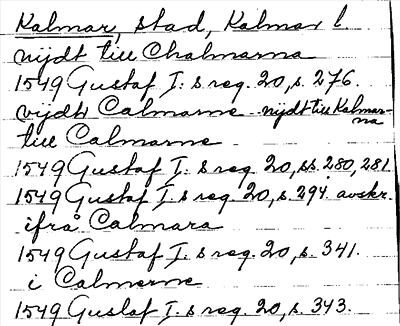 Kalmar, stad, Kalmar l.
nijdt till Chalmarna
1549 Gustaf I:s reg. 20, s. 276.
vijdh Calmarne nijdt till Kalmar-
na
till Calmarne
1549 Gustaf I:s reg. 20, ss. 280, 281
1549 Gustaf I:s reg. 20, s. 294. avskr.
ifrå Calmara
1549 Gustaf I:s reg. 20, s. 341.
i Calmerne
1549 Gustaf I:s reg. 20, s. 343.